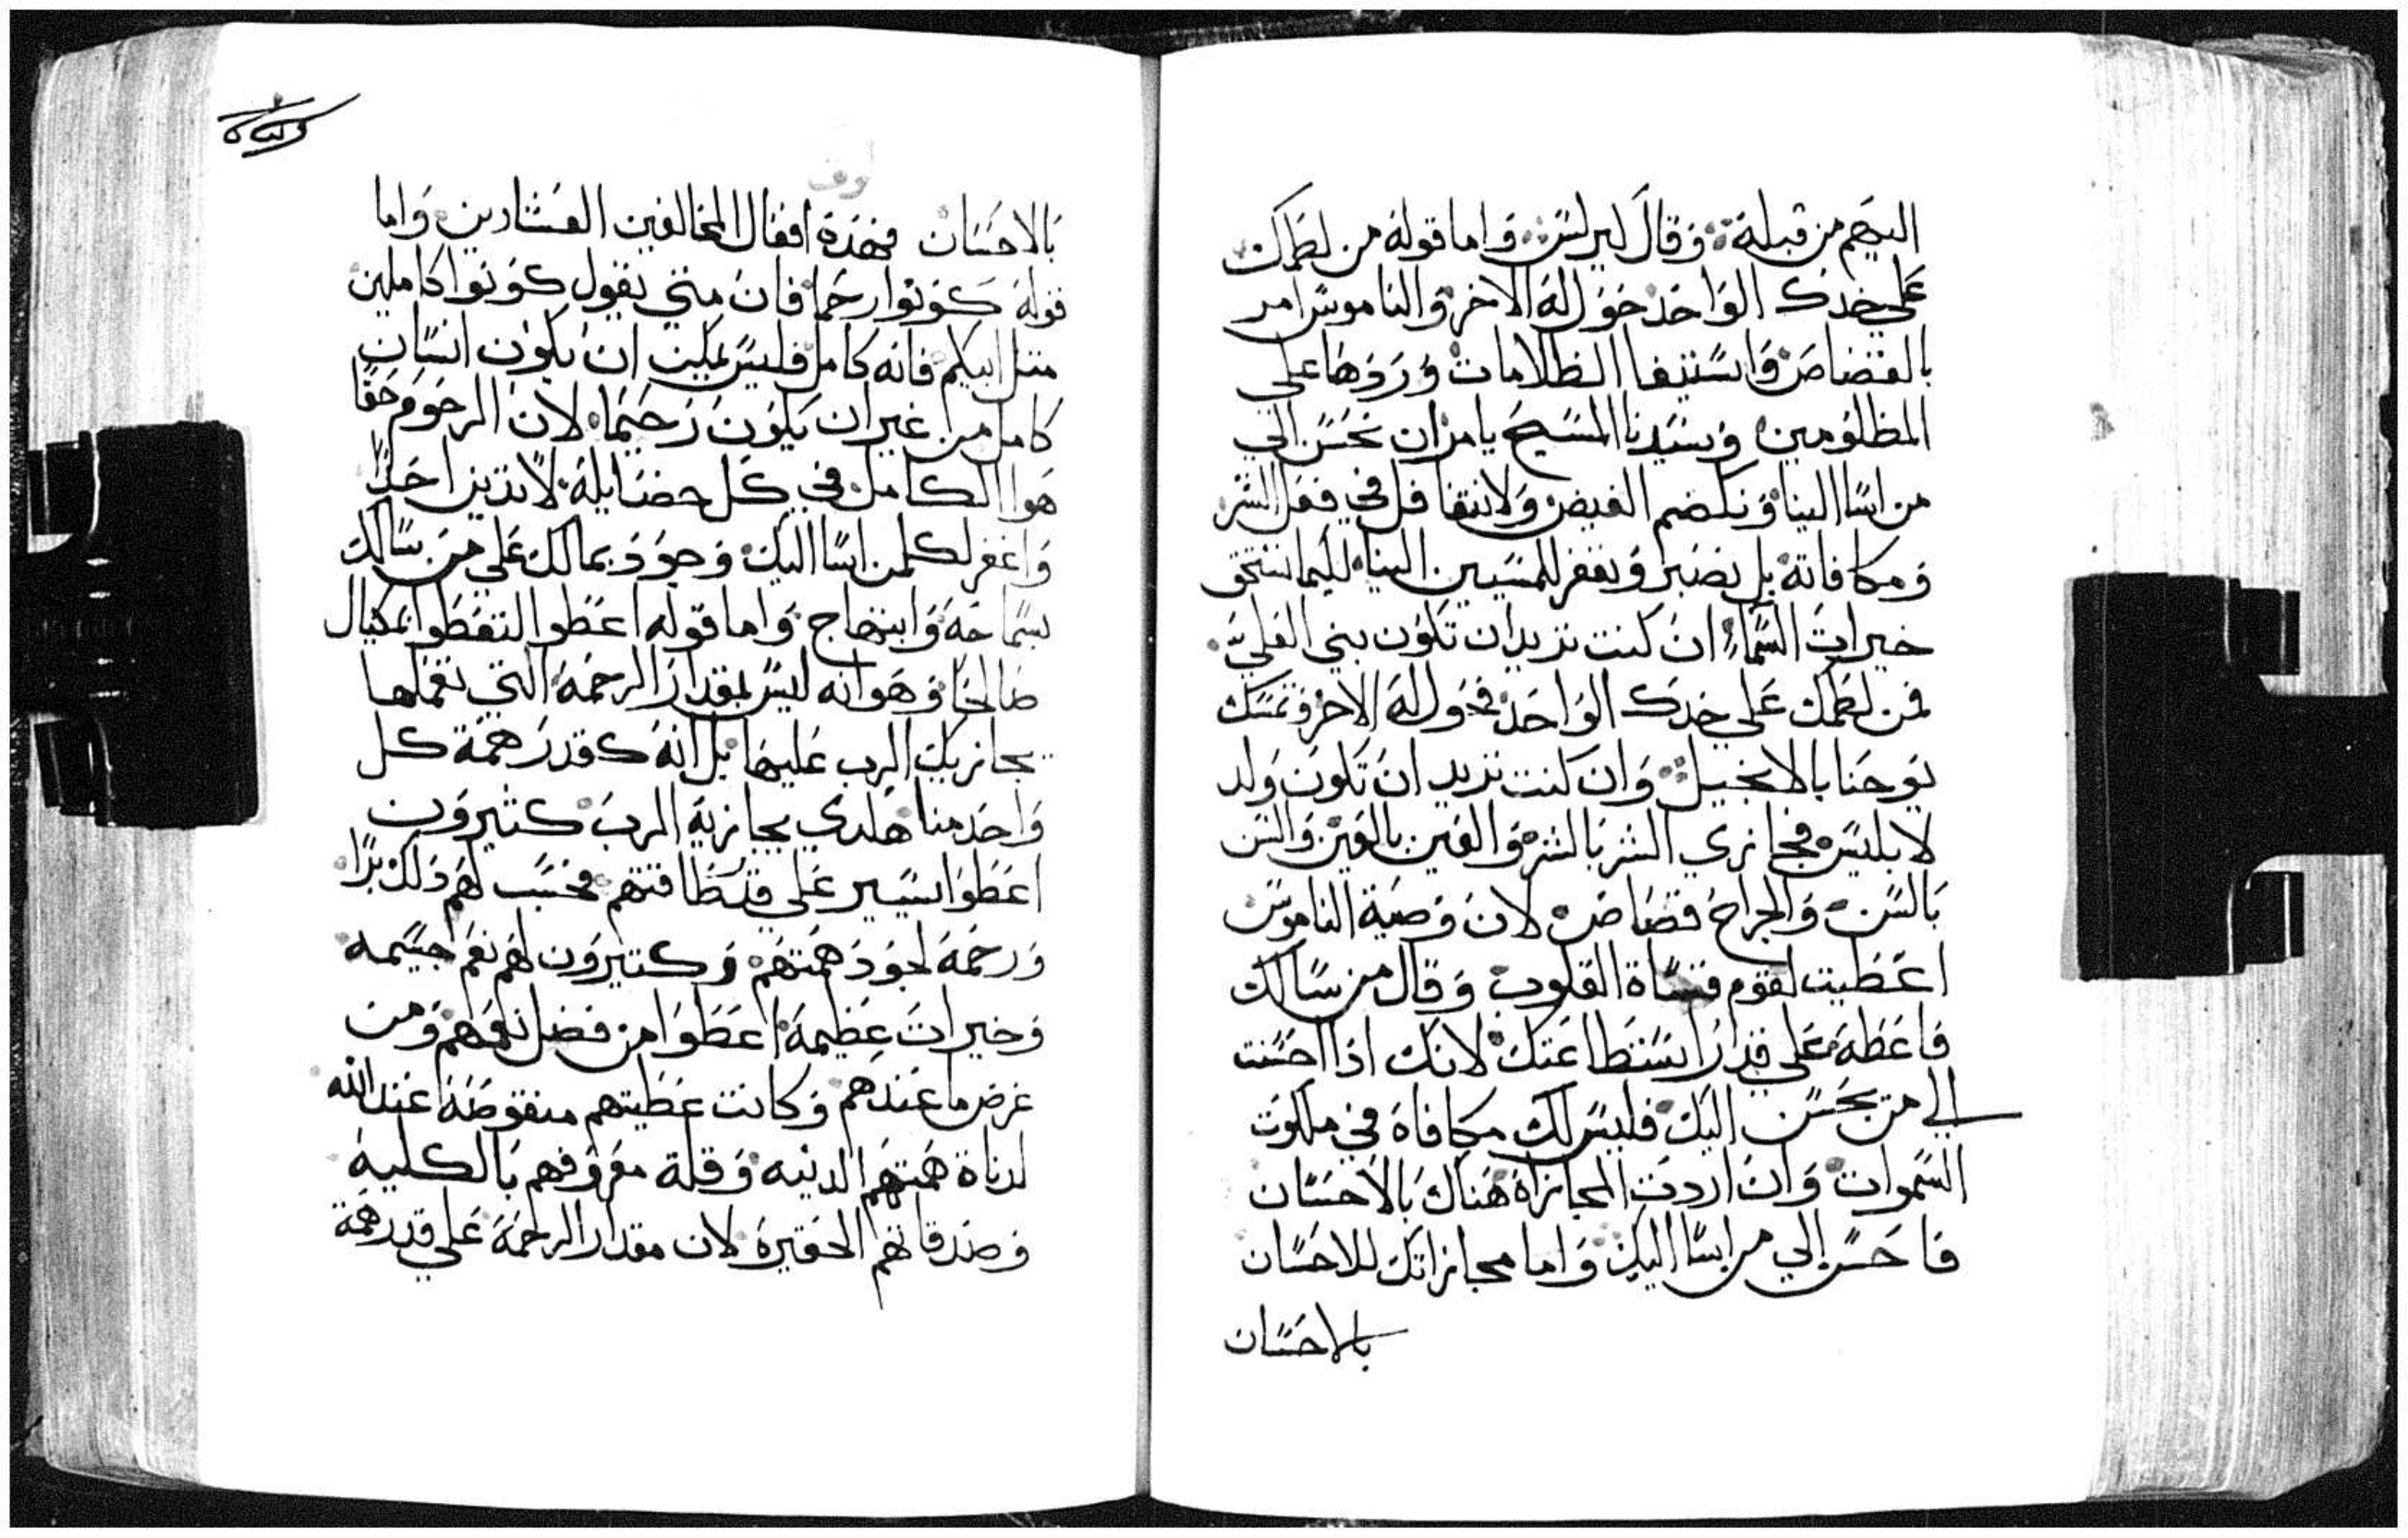 اليهم من قبله وقال كيرلس واما قوله من لطمك
على خدك الواحد حول له الاخر والناموس امر
بالقصاص واستيفا الظلامات وردها على
المظلومين وسيدنا المسيح يامر ان نحسن الي
من اسا الينا ونكضم الغيض ولا نتغافل في فعل الشر
ومكافاته بل نصبر ونغفر للمسيين الينا لكيما نستحق
خيرات السماء ان كنت تريد ان تكون بني العلي
فمن لطمك على خدك الواحد فحول له الاخر وتمسك
يوحنا بالانجيل وان كنت تريد ان تكون ولد
لابليس فجازي الشر بالشر والعين بالعين والسن
بالسن والجراح قصاص لان وصية الناموس
اعطيت لقوم قساة القلوب وقال من سالك
فاعطه على قدر استطاعتك لانك اذا احسنت
الي من يحسن اليك فليس لك مكافاة في ملكوت
السموات وان اردت المجازاة هناك بالاحسان
فاحسن الي من اسا اليك واما مجازاتك للاحسان
بالاحسان
بالاحسان فهذه افعال المخالفين العشارين واما
قوله كونوا رحما فان متي يقول كونوا كاملين
متل ابيكم فانه كامل فليس يمكن ان يكون انسان
كامل من غير ان يكون رحيما لان الرحوم حقا
هوا الكامل في كل خضايله لا تدين احدا
واغفر لكلمن اسا اليك وجود بمالك علي من سالك
بسماحه وابتهاج واما قوله اعطوا لتعطوا بمكيال
صالحا وهو انه ليس بمقدار الرحمة التي تعملها
يجازيك الرب عليها بل انه كقدر همة كل
واحد منا هكدي يجازيه الرب كثيرون
اعطوا يسير علي قدر طاقتهم فحسب لهم دلك برا
ورحمة لجود همتهم وكتيرون لهم نعم جسيمه
وخيرات عظيمة اعطوا من فضل نعمهم ومن
عرض ما عندهم وكانت عطيتهم منقوصة عند الله
لدناة همتهم الدنيه وقلة معروفهم بالكلية
وصدقاتهم الحقيرة لان مقدار الرحمة علي قدر همة